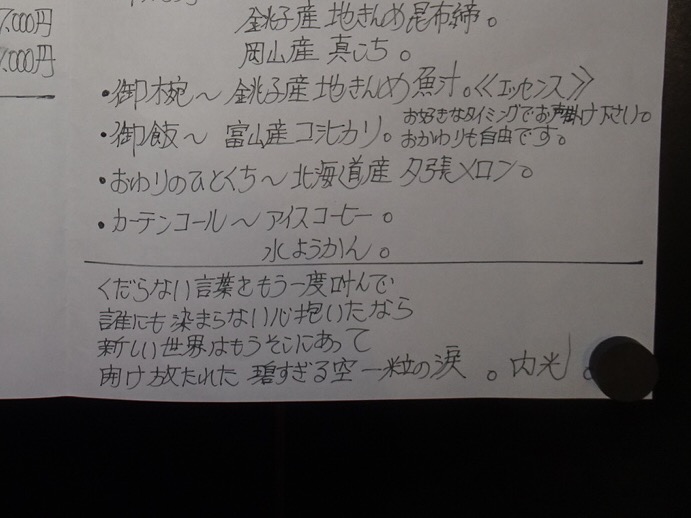 7.000円
銚子産 地きんめ 昆布締。
7.000円
岡山産 真こち。
・御椀〜 銚子産 地きんめ 魚汁。≪エッセンス≫
・御飯〜 富山産 コシヒカリ。お好きなタイミングでお声掛け下さい。
おかわりも自由です。
・おわりのひとくち〜 北海道産 夕張メロン。
・カーテンコール〜 アイスコーヒー。
水ようかん。
くだらない言葉をもう一度叫んで
誰にも染まらない心抱いたなら
新しい世界はもうそこにあって
開け放たれた 碧すぎる空 一粒の涙 。内光 。